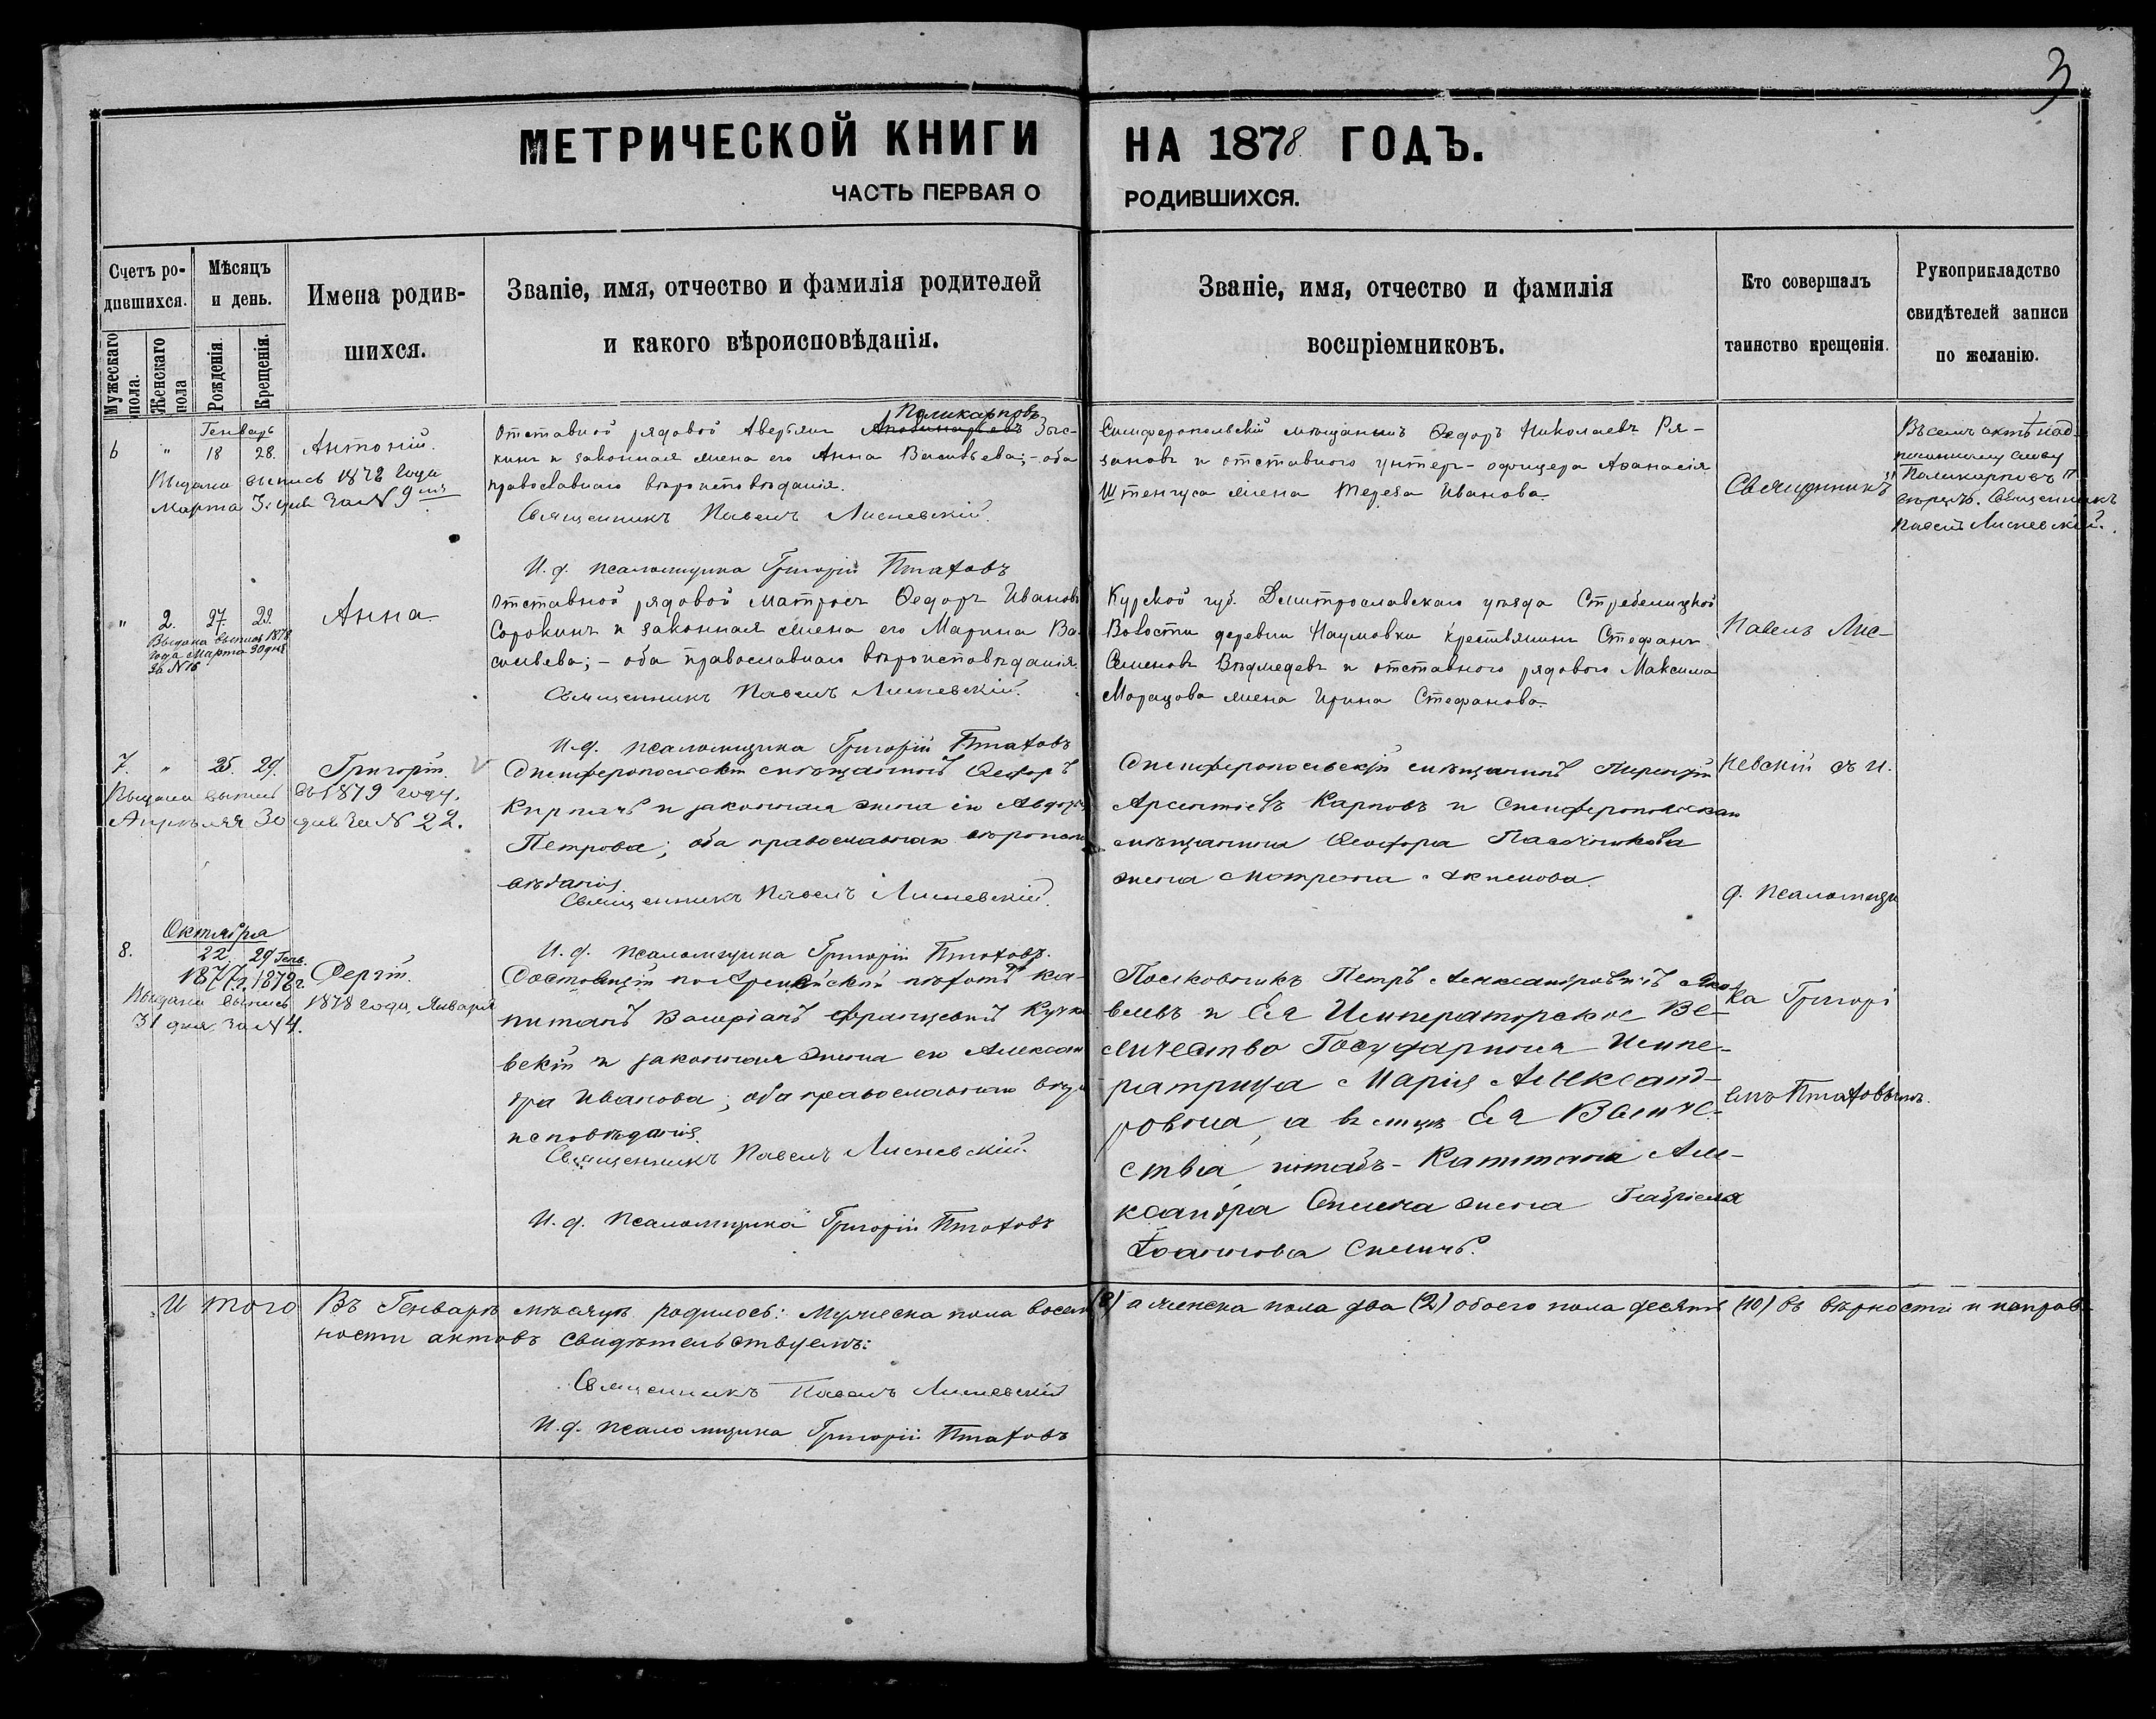 3
МЕТРИЧЕСКОЙ КНИГИ НА 1878 ГОДЪ.
ЧАСТЬ ПЕРВАЯ О РОДИВШИХСЯ.
Счетъ ро-
дившихся.
Мужескаго пола.
Женскаго пола
Мѣсяцъ
и день.
Рожденія.
Крещенія.
Имена родив-
шихся.
Званіе, имя, отчество и фамилія родителей
и какого вѣроисповѣданія.
Званіе, имя, отчество и фамилія
воспріемниковъ.
Кто совершалъ
таинство крещенія.
Рукоприкладство
свидѣтелей записи
по желанію.
Генварь
6 " 18 28. Антоній.
Выдана выпись 1878 года
Марта 3. дня за N 9
Поликарповъ
Отставной рядовой Аверьянъ Зыс-
кинъ и законная жена его Анна Васильева; - оба
православнаго вѣроисповѣданія.
Священникъ Павелъ Лисневскій.
И. д. псаломщика Григорій Птаховъ
Симферопольскій мѣщанинъ Ѳедоръ Николаевъ Ря-
зановъ и отставного унтеръ-офицера Аѳанасія
Штенгуса жена Тереза Иванова
Священникъ
Въ семъ актѣ над-
писанному слову
"Поликарповъ"
вѣрить. Священникъ
Павелъ Лисневскій.
" 2. 27. 29. Анна
Выдана выпись 1878
года Марта 30 дня
за N 16
Отставной рядовой матросъ Ѳедоръ Ивановъ
Сорокинъ и законная жена его Марина Ва-
сильева; - оба православнаго вѣроисповѣданія.
Священникъ Павелъ Лисневскій.
И. д. псаломщика Григорій Птаховъ
Курской губ. Дмитрославскаго уѣзда
Волости деревни Наумовки крестьянинъ Стефанъ
Семеновъ Вѣдмедевъ и отставного рядового Максима
Морацова жена Ирина Стефанова
Павелъ Лис-
7. " 25. 29. Григорій.
Выдана выпись въ 1879 году.
Апрѣля 30 дня за N 22.
Симферопольскій мѣщанинъ Ѳедоръ
Кирпачъ и законная жена его Авдотья
Петрова; оба православнаго вѣроиспо-
вѣданія.
Священникъ Павелъ Лисневскій.
И. д. псаломщика Григорій Птаховъ.
Симферопольскій мѣщанинъ
Арсентіевъ Карповъ и Симферопольскаго
мѣщанина Ѳеодора
жена Матрона Акимова.
невскій съ И.
д. псаломщи
Октября
8. 22. 29 Генв.
1877 г. 1878 г. Сергій.
Выдана выпись 1878 года, Января
31 дня за N 4.
Состоящій по Армейской пѣхотѣ ка-
питанъ Валеріанъ Францевичъ
и законная жена его Алексан-
дра Иванова; оба православнаго вѣро-
исповѣданія.
Священникъ Павелъ Лисневскій.
И. д. псаломщика Григорій Птаховъ
Полковникъ Петръ Александровичъ Яко-
влевъ и Ея Императорское Ве-
личество Государыня Импе-
ратрица Марія Александ-
ровна, а въ лицѣ Ея Величе-
ства, штабъ-Капитана Але-
ксандра жена Габріеля
Іоаннова
ка Григорі
емъ Птаховымъ.
И того Въ Генварѣ мѣсяцѣ родилось: мужеска пола восемь (8) а женска пола два (2) обоего пола десять (10) въ вѣрности и исправ-
ности актовъ свидѣтельствуемъ:
Священникъ Павелъ Лисневскій
И. д. псаломщика Григорій Птаховъ